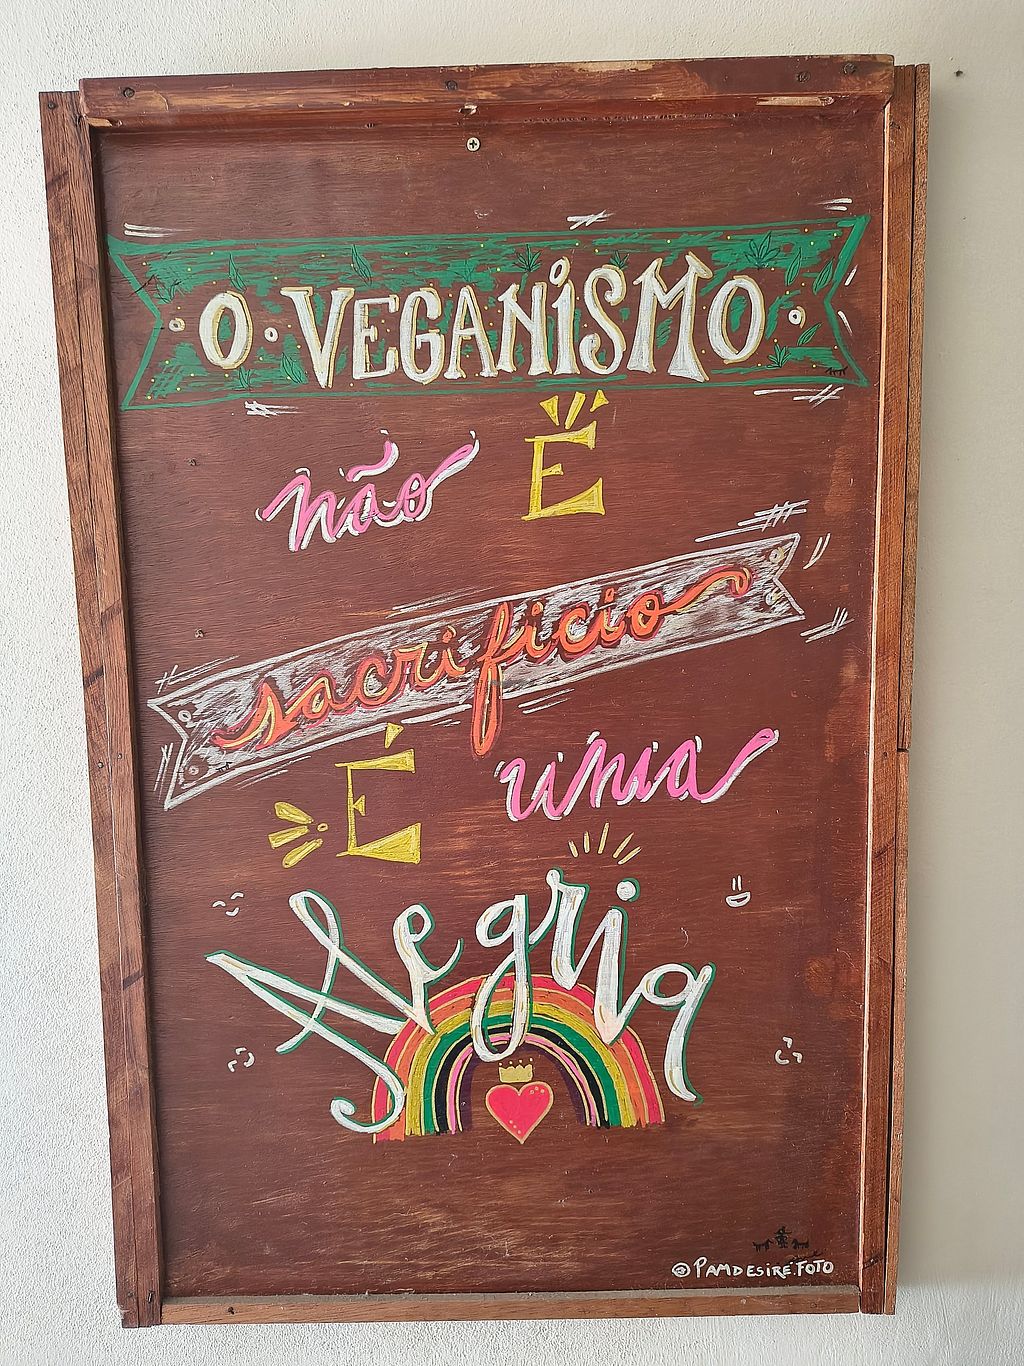 O VEGANiSMO
não É
sacrificio
É uma
Alegria
@PAMDESIRÉ.FOTO